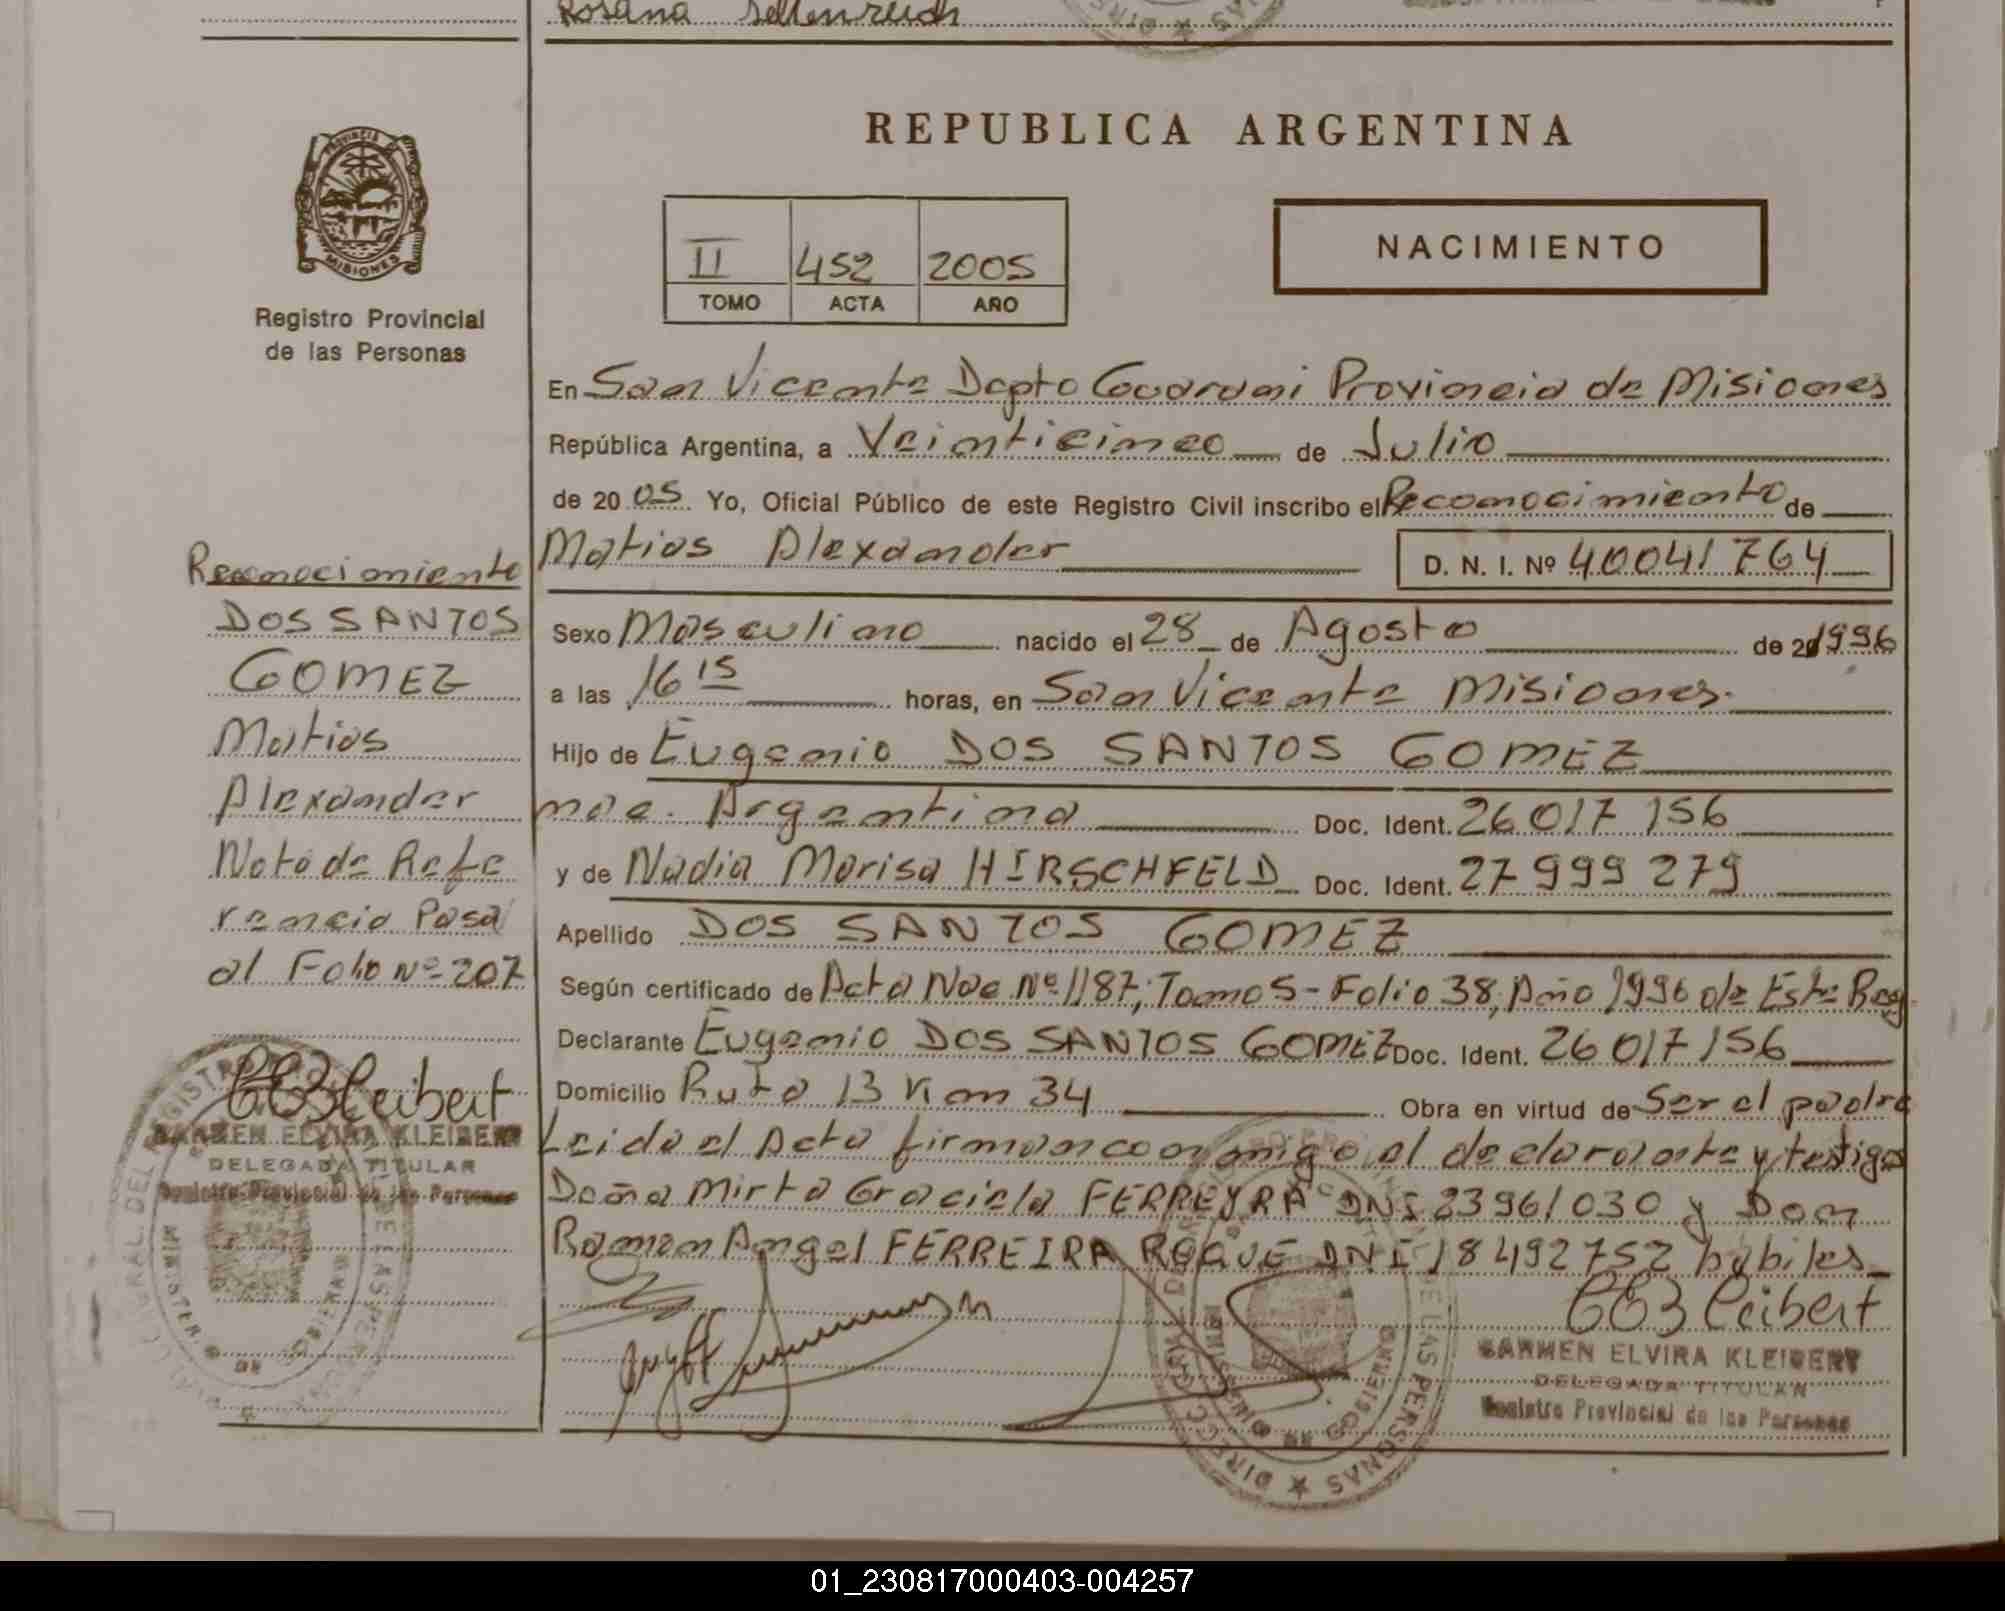 Rosana Sellenreich
REPUBLICA ARGENTINA
PROVINCIA DE
MISIONES
Registro Provincial
de las Personas
II 452 2005
TOMO ACTA AÑO
NACIMIENTO
En San Vicente Depto Guarani Provincia de Misiones
República Argentina, a Veinticinco de Julio
de 20 05 Yo, Oficial Público de este Registro Civil inscribo el Reconocimiento de
Matias Alexander D. N. I. Nº 40041764
Sexo Masculino nacido el 28 de Agosto de 1996
a las 16 15 horas, en San Vicente Misiones.
Hijo de Eugenio DOS SANTOS GOMEZ
nac. Argentina Doc. Ident. 26017156
y de Nadia Marisa HIRSCHFELD Doc. Ident. 27999279
Apellido DOS SANTOS GOMEZ
Según certificado de Acta Nac Nº 1187, Tomo 5 - Folio 38, Año 1996 de Este Reg
Declarante Eugenio DOS SANTOS GOMEZ Doc. Ident. 26017156
Domicilio Ruta 13 Km 34 Obra en virtud de Ser el padre
Leida el Acta firman conmigo el declarante y testigos
Doña Mirta Graciela FERREYRA DNI 23961030 y Don
Ramon Angel FERREIRA ROQUE DNI 18492752 habiles
CARMEN ELVIRA KLEIBERT
DELEGADA TITULAR
Registro Provincial de las Personas
Reconocimiento
DOS SANTOS
GOMEZ
Matias
Alexander
Nota de Refe
rencia Pasa
al Folio Nº 207
CARMEN ELVIRA KLEIBERT
DELEGADA TITULAR
Registro Provincial de las Personas
01_230817000403-004257